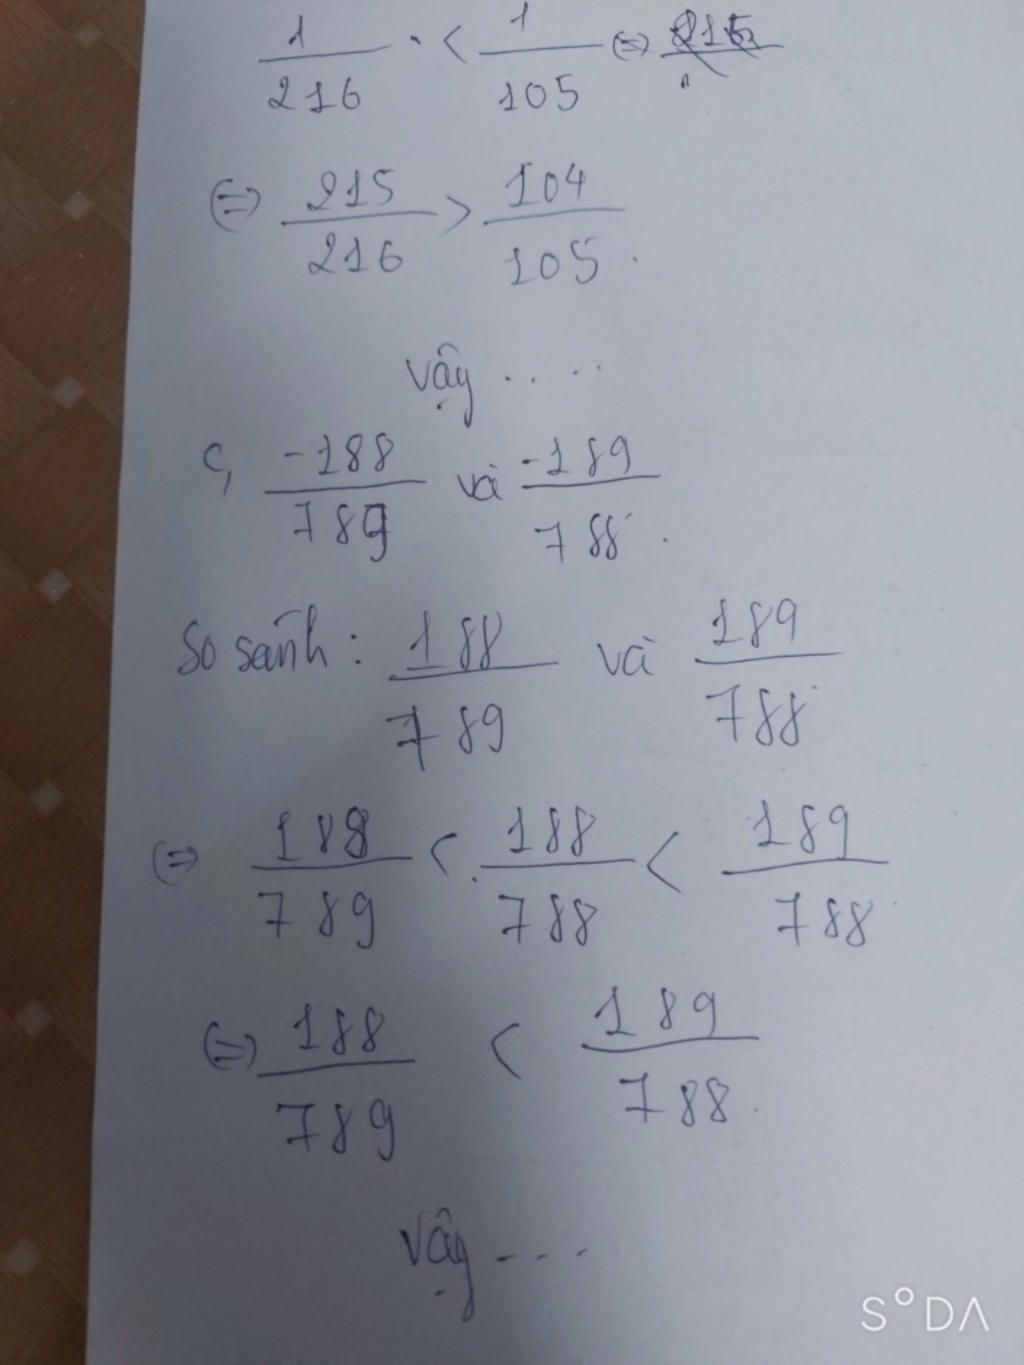 1/216 < 1/105 (=)
(=) 215/216 > 104/105.
vậy . . . .
c, -188/789 và -189/788.
So sánh: 188/789 và 189/788
(=) 188/789 < 188/788 < 189/788
(=) 188/789 < 189/788.
Vậy - - -
S°DA